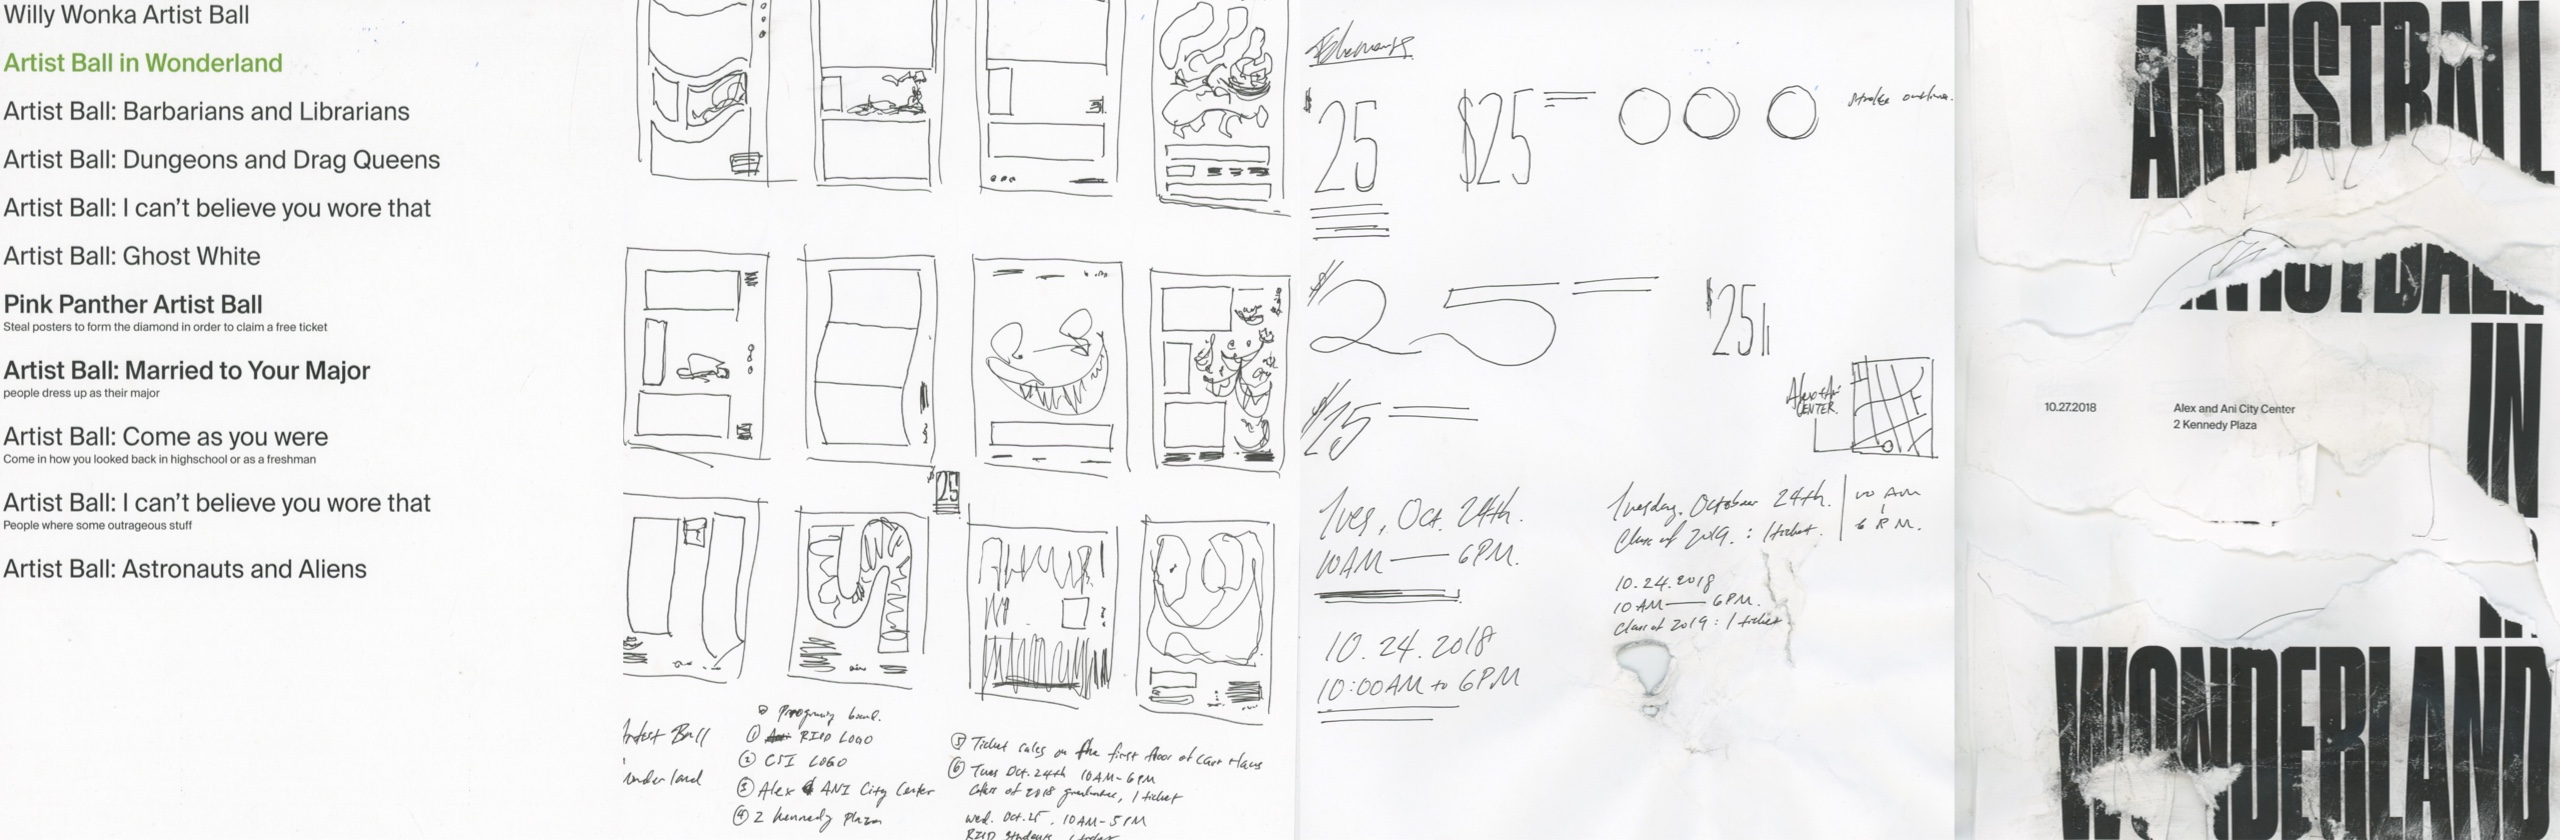 Willy Wonka Artist Ball
Artist Ball in Wonderland
Artist Ball: Barbarians and Librarians
Artist Ball: Dungeons and Drag Queens
Artist Ball: I can't believe you wore that
Artist Ball: Ghost White
Pink Panther Artist Ball
Steal posters to form the diamond in order to claim a free ticket
Artist Ball: Married to Your Major
people dress up as their major
Artist Ball: Come as you were
Come in how you looked back in highschool or as a freshman
Artist Ball: I can't believe you wore that
People where some outrageous stuff
Artist Ball: Astronauts and Aliens
25
Artist Ball
Wonderland
① RISD LOGO
② CSI LOGO
③ Alex & ANI City Center
④ 2 Kennedy Plaza
⑤ Ticket sales on the first floor of Carr Haus
⑥ Tues Oct. 24th 10AM-6PM
Class of 2018 graduates, 1 ticket
Wed. Oct. 25. 10AM-5PM
RISD Students 1 ticket
Elements
$25
$25
stroke outline.
$25
$25
$25
Alex & Ani
CENTER.
Tues, Oct. 24th.
10AM — 6PM.
10.24.2018
10:00AM to 6PM
Tuesday. October 24th.
Class of 2019. : 1 ticket.
10 AM
6 P.M.
10.24.2018
10AM — 6PM.
Class of 2019 : 1 ticket
ARTISTBALL
ARTISTBALL
IN
10.27.2018
Alex and Ani City Center
2 Kennedy Plaza
IN
WONDERLAND